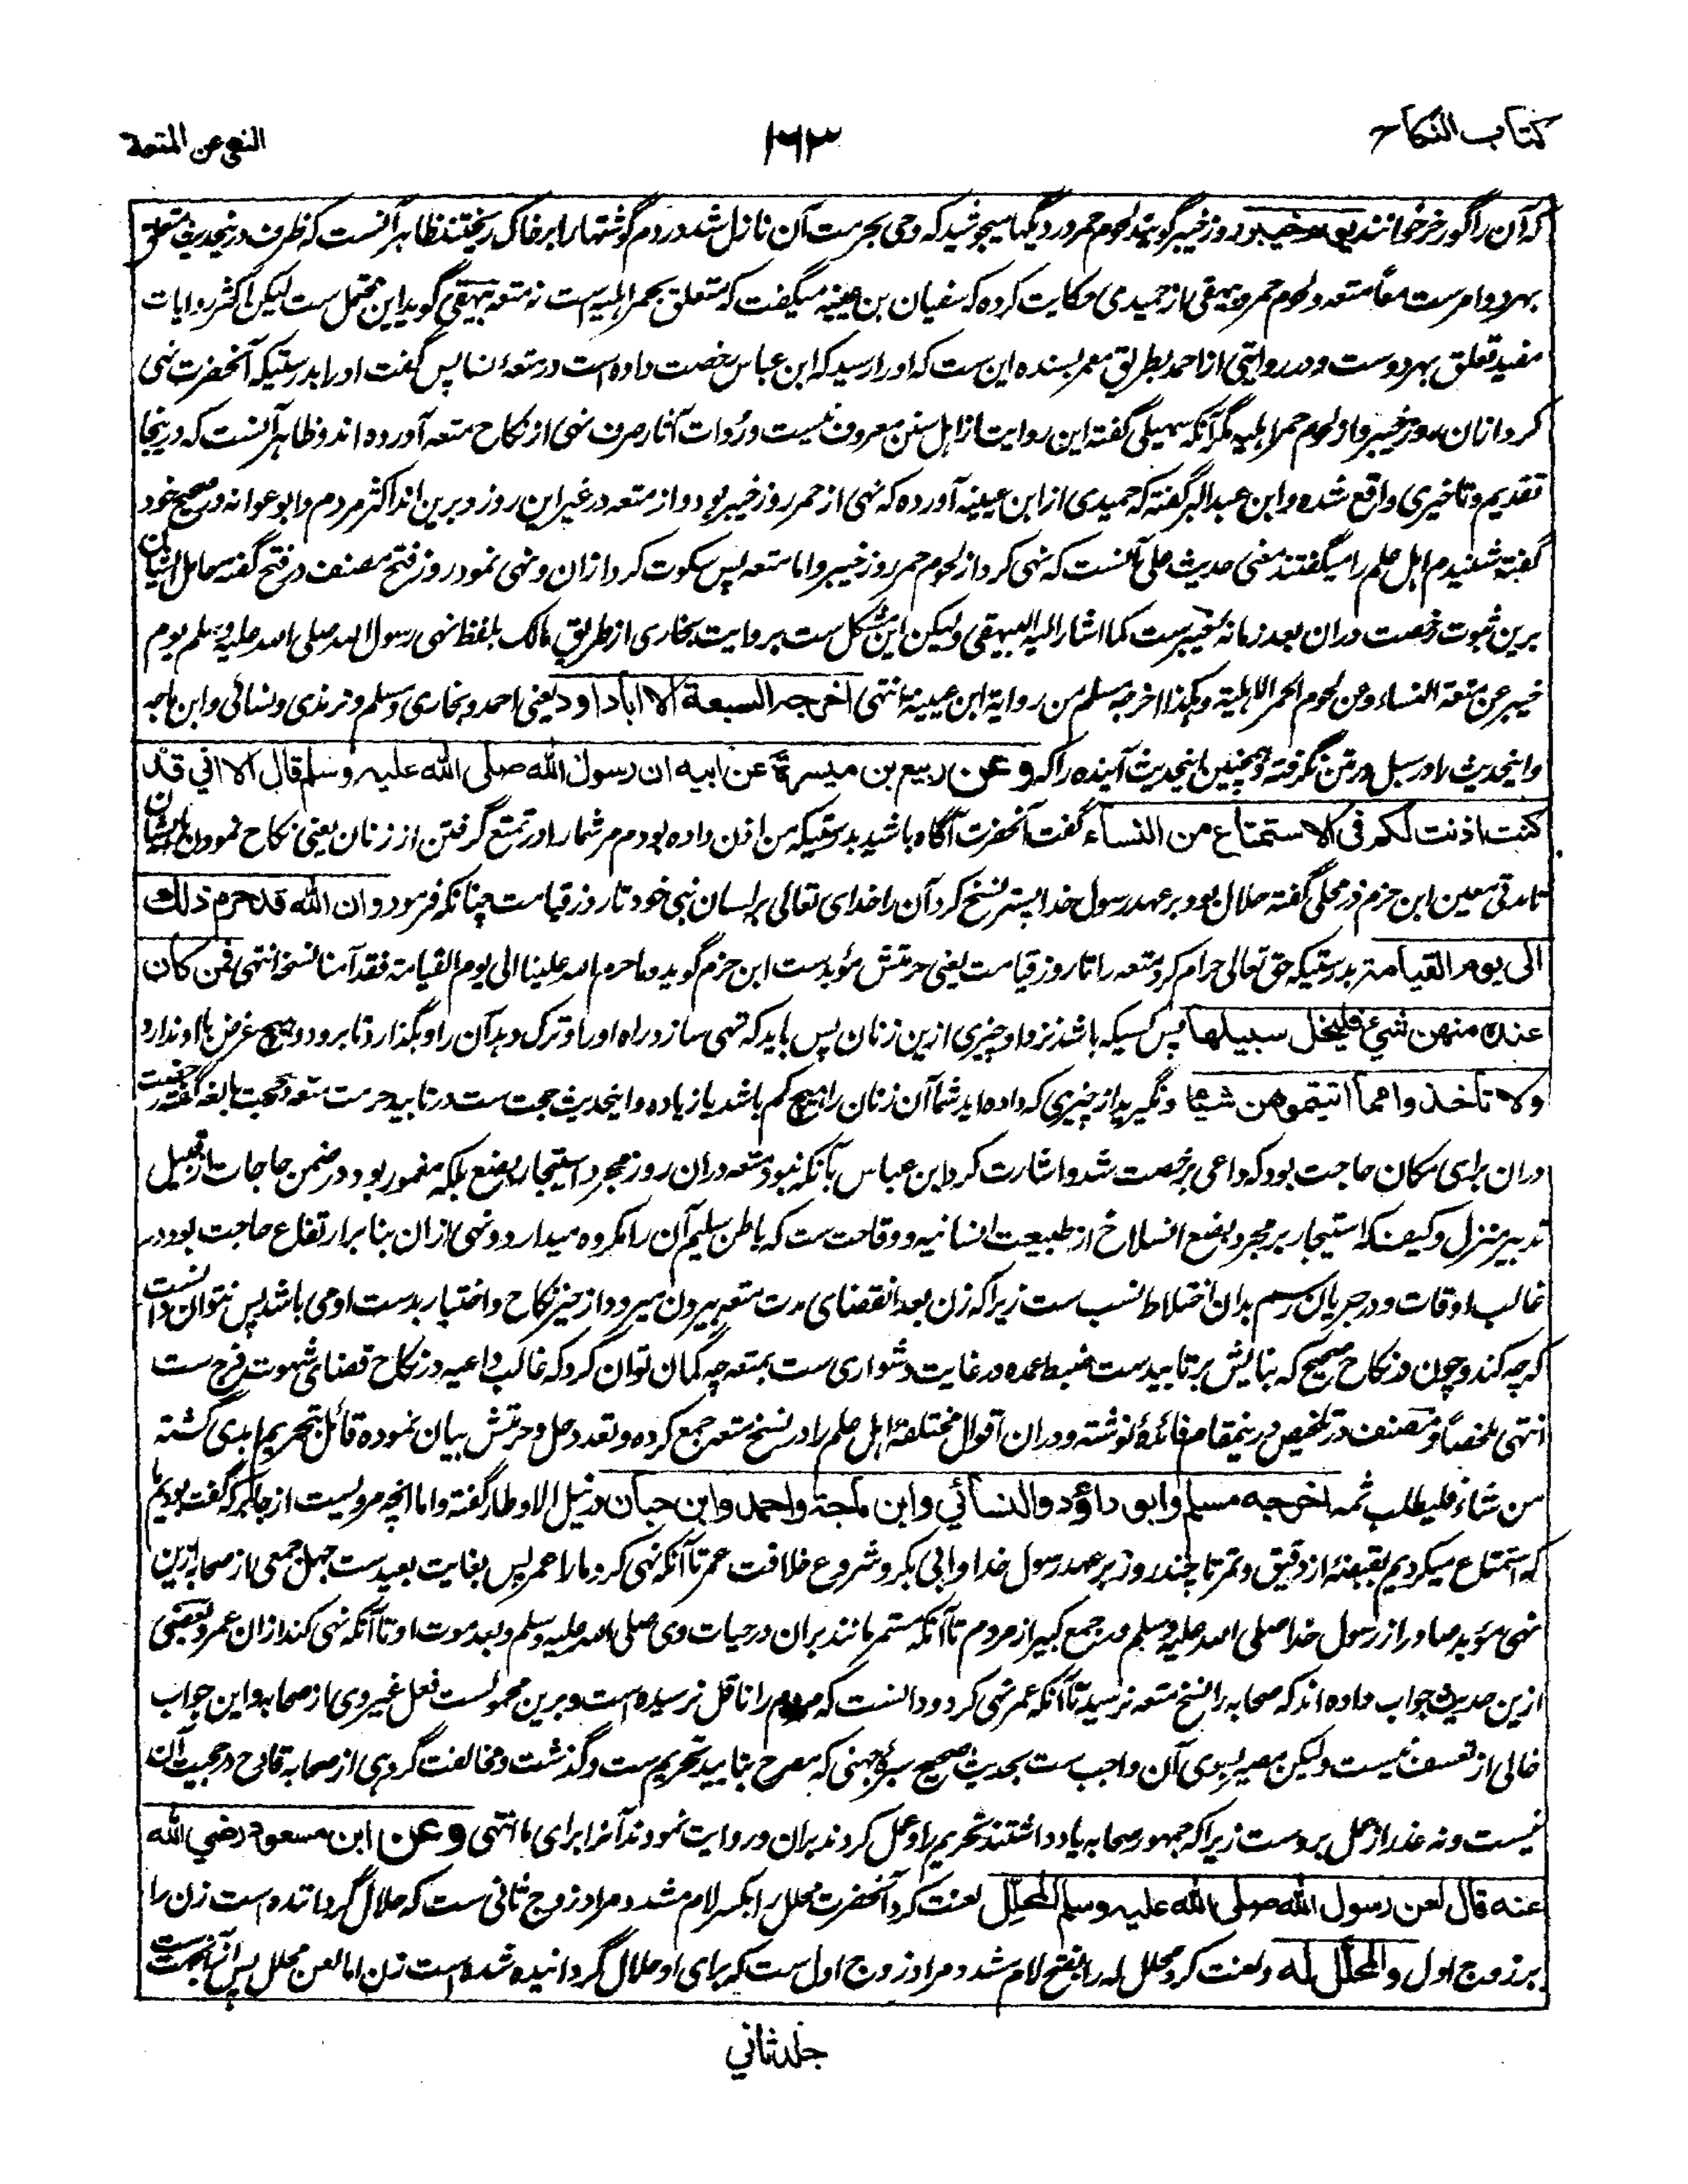 كتاب النكاح
١٦٣
النهي عن المتعة
که آن را گورخر خوانند یوم خیبر روز خیبر گویند لحوم حمر در دیگها میجوشید که وحی بحرمت آن نازل شد مردم گوشتها را بر خاک ریختند ظاهر آنست که ظرف درینحدیث متعلق
بهر دو امرست معاً متعه و لحوم حمر و بیهقی از حمیدی حکایت کرده که سفیان بن عیینه میگفت که متعلق بحمر اهلیه است نه متعه بیهقی گوید این محتمل ست لیکن اکثر روایات
مفید تعلق بهر دوست و در روایتی از احمد بطریق معمر بسنده این ست که او را رسید که ابن عباس رخصت داده است در متعه نسا پس گفت او را بدرستیکه آنحضرت نهی
کرد ازان روز خیبر و از لحوم حمر اهلیه مگر آنکه سهیلی گفته این روایت از اهل سنن معروف نیست و رُوات آثار صرف نهی از نکاح متعه آورده اند و ظاهر آنست که درینجا
تقدیم و تاخیری واقع شده و ابن عبد البر گفته که حمیدی از ابن عیینه آورده که نهی از حمر روز خیبر بود و از متعه در غیر این روز و برین اند اکثر مردم و ابو عوانه در صحیح خود
گفته شنیدم اهل علم را میگفتند معنی حدیث علی آنست که نهی کرد از لحوم حمر روز خیبر و اما متعه پس سکوت کرد ازان و نهی نمود روز فتح مصنف در فتح گفته حامل ایشان
برین ثبوت رخصت دران بعد زمانه خیبرست کما اشار الیه البیهقی ولیکن این مشکل ست بروایت بخاری از طریق مالک بلفظ نهی رسول الله صلی الله علیه وسلم یوم
خیبر عن متعة النساء وعن لحوم الحمر الاهلیة وهکذا اخرجه مسلم من روایة ابن عیینة انتهی اخرجه السبعة الا ابا داود یعنی احمد و بخاری و مسلم و ترمذی و نسائی و ابن ماجه
و اینحدیث را در سبل در متن نگرفته و همچنین اینحدیث آینده را که وعن ربیع بن میسرة عن ابیه ان رسول الله صلی الله علیه وسلم قال الا انی قد
کنت اذنت لکم فی الاستمتاع من النساء گفت آنحضرت آگاه باشید بدرستیکه من اذن داده بودم مر شما را در تمتع گرفتن از زنان یعنی نکاح نمودن بایشان
تا مدتی معین ابن حزم در محلی گفته حلال بود بر عهد رسول خدا پستر نسخ کرد آن را خدای تعالی بر لسان نبی خود تا روز قیامت چنانکه فرمود وان الله قد حرم ذلک
الی یوم القیامة بدرستیکه حق تعالی حرام کرد متعه را تا روز قیامت یعنی حرمتش موبدست ابن حزم گوید وما حرم الله علینا الی یوم القیامة فقد آمنا نسخه انتهی فمن کان
عنده منهن شیء فلیخل سبیلها پس کسیکه باشد نزد او چیزی ازین زنان پس باید که تهی سازد راه او را و ترک دهد آن را و بگذارد تا برود و هیچ غرض با او ندارد
ولا تأخذوا مما آتیتموهن شیئا و نگیرید از چیزی که داده اید شما آن زنان را هیچ کم باشد یا زیاده و اینحدیث حجت ست در تابید حرمت متعه و در حجت بالغه گفته رخصت
دران برای مکان حاجت بود که داعی برخصت شد و اشارت کرد ابن عباس بآنکه نبود متعه دران روز مجرد استیجار بضع بلکه مغمور بود در ضمن حاجات از قبیل
تدبیر منزل و کیف که استیجار بر مجرد بضع انسلاخ از طبیعت انسانیه و وقاحت ست که باطن سلیم آن را مکروه میدارد و نهی ازان بنا بر ارتفاع حاجت بود در
غالب اوقات و در جریان رسم بدان اختلاط نسب ست زیرا که زن بعد انقضای مدت متعه بیرون میرود از حیز نکاح و اختیار بدست او می باشد پس نتوان دانست
که چه کند و چون در نکاح صحیح که بنایش بر تابیدست ضبط عده در غایت دشواری ست بمتعه چه گمان توان کرد که غالب داعیه در نکاح قضای شهوت فرج ست
انتهی ملخصاً و مصنف در تلخیص درینمقام فائده نوشته و دران اقوال مختلفهٔ اهل علم را در نسخ متعه جمع کرده و تعدد حل و حرمتش بیان نموده قائل بتحریم ابدی گشته
من شاء فلیطلب ثمه اخرجه مسلم وابو داؤد والنسائی وابن ماجة واحمد وابن حبان در نیل الاوطار گفته و اما آنچه مرویست از جابر که گفت بودیم ما
که استمتاع میکردیم بقبضهٔ از دقیق و تمر تا چند روز بر عهد رسول خدا و ابی بکر و شروع خلافت عمر تا آنکه نهی کرد ما را عمر پس بغایت بعیدست جهل جمعی از صحابه ازین
نهی موبد صادر از رسول خدا صلی الله علیه وسلم در جمع کبیر از مردم تا آنکه مستمر مانند بران در حیات وی صلی الله علیه وسلم و بعد موت او تا آنکه نهی کند ازان عمر و بعضی
ازین حدیث جواب داده اند که صحابه را نسخ متعه نرسید تا آنکه عمر نهی کرد و دانست که مردم را ناقل نرسیده است و برین محمولست فعل غیر وی از صحابه و این جواب
خالی از تعسف نیست ولیکن مصیر بسوی آن واجب ست بحدیث صحیح سبرهٔ جهنی که مصرح بتابید تحریم ست و گذشت و مخالفت گروهی از صحابه قادح در حجیت آن
نیست و نه عذر از عمل بروست زیرا که جمهور صحابه یاد داشتند تحریم را و عمل کردند بران و روایت نمودند آنرا برای ما انتهی وعن ابن مسعود رضی الله
عنه قال لعن رسول الله صلی الله علیه وسلم المحلِّل لعنت کرد آنحضرت محلل را بکسر لام مشدد مراد زوج ثانی ست که حلال گرداننده است زن را
بر زوج اول والمحلَّل له و لعنت کرد محلل له را بفتح لام مشدد مراد زوج اول ست که برای او حلال گردانیده شده است زن اما لعن محلل پس ازآنجهت
جلد ثاني